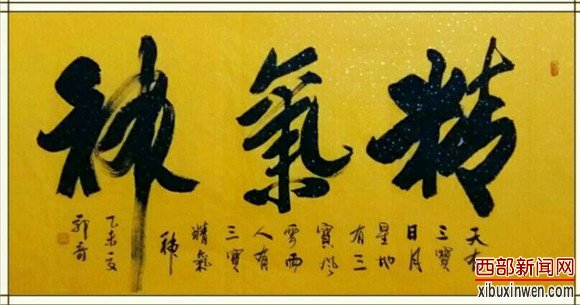 精氣神
天有
三寶
日月
星地
有三
寶風
雲雨
人有
三寶
精氣
神
乙未
郭奇
西部新闻网
xibuxinwen.com